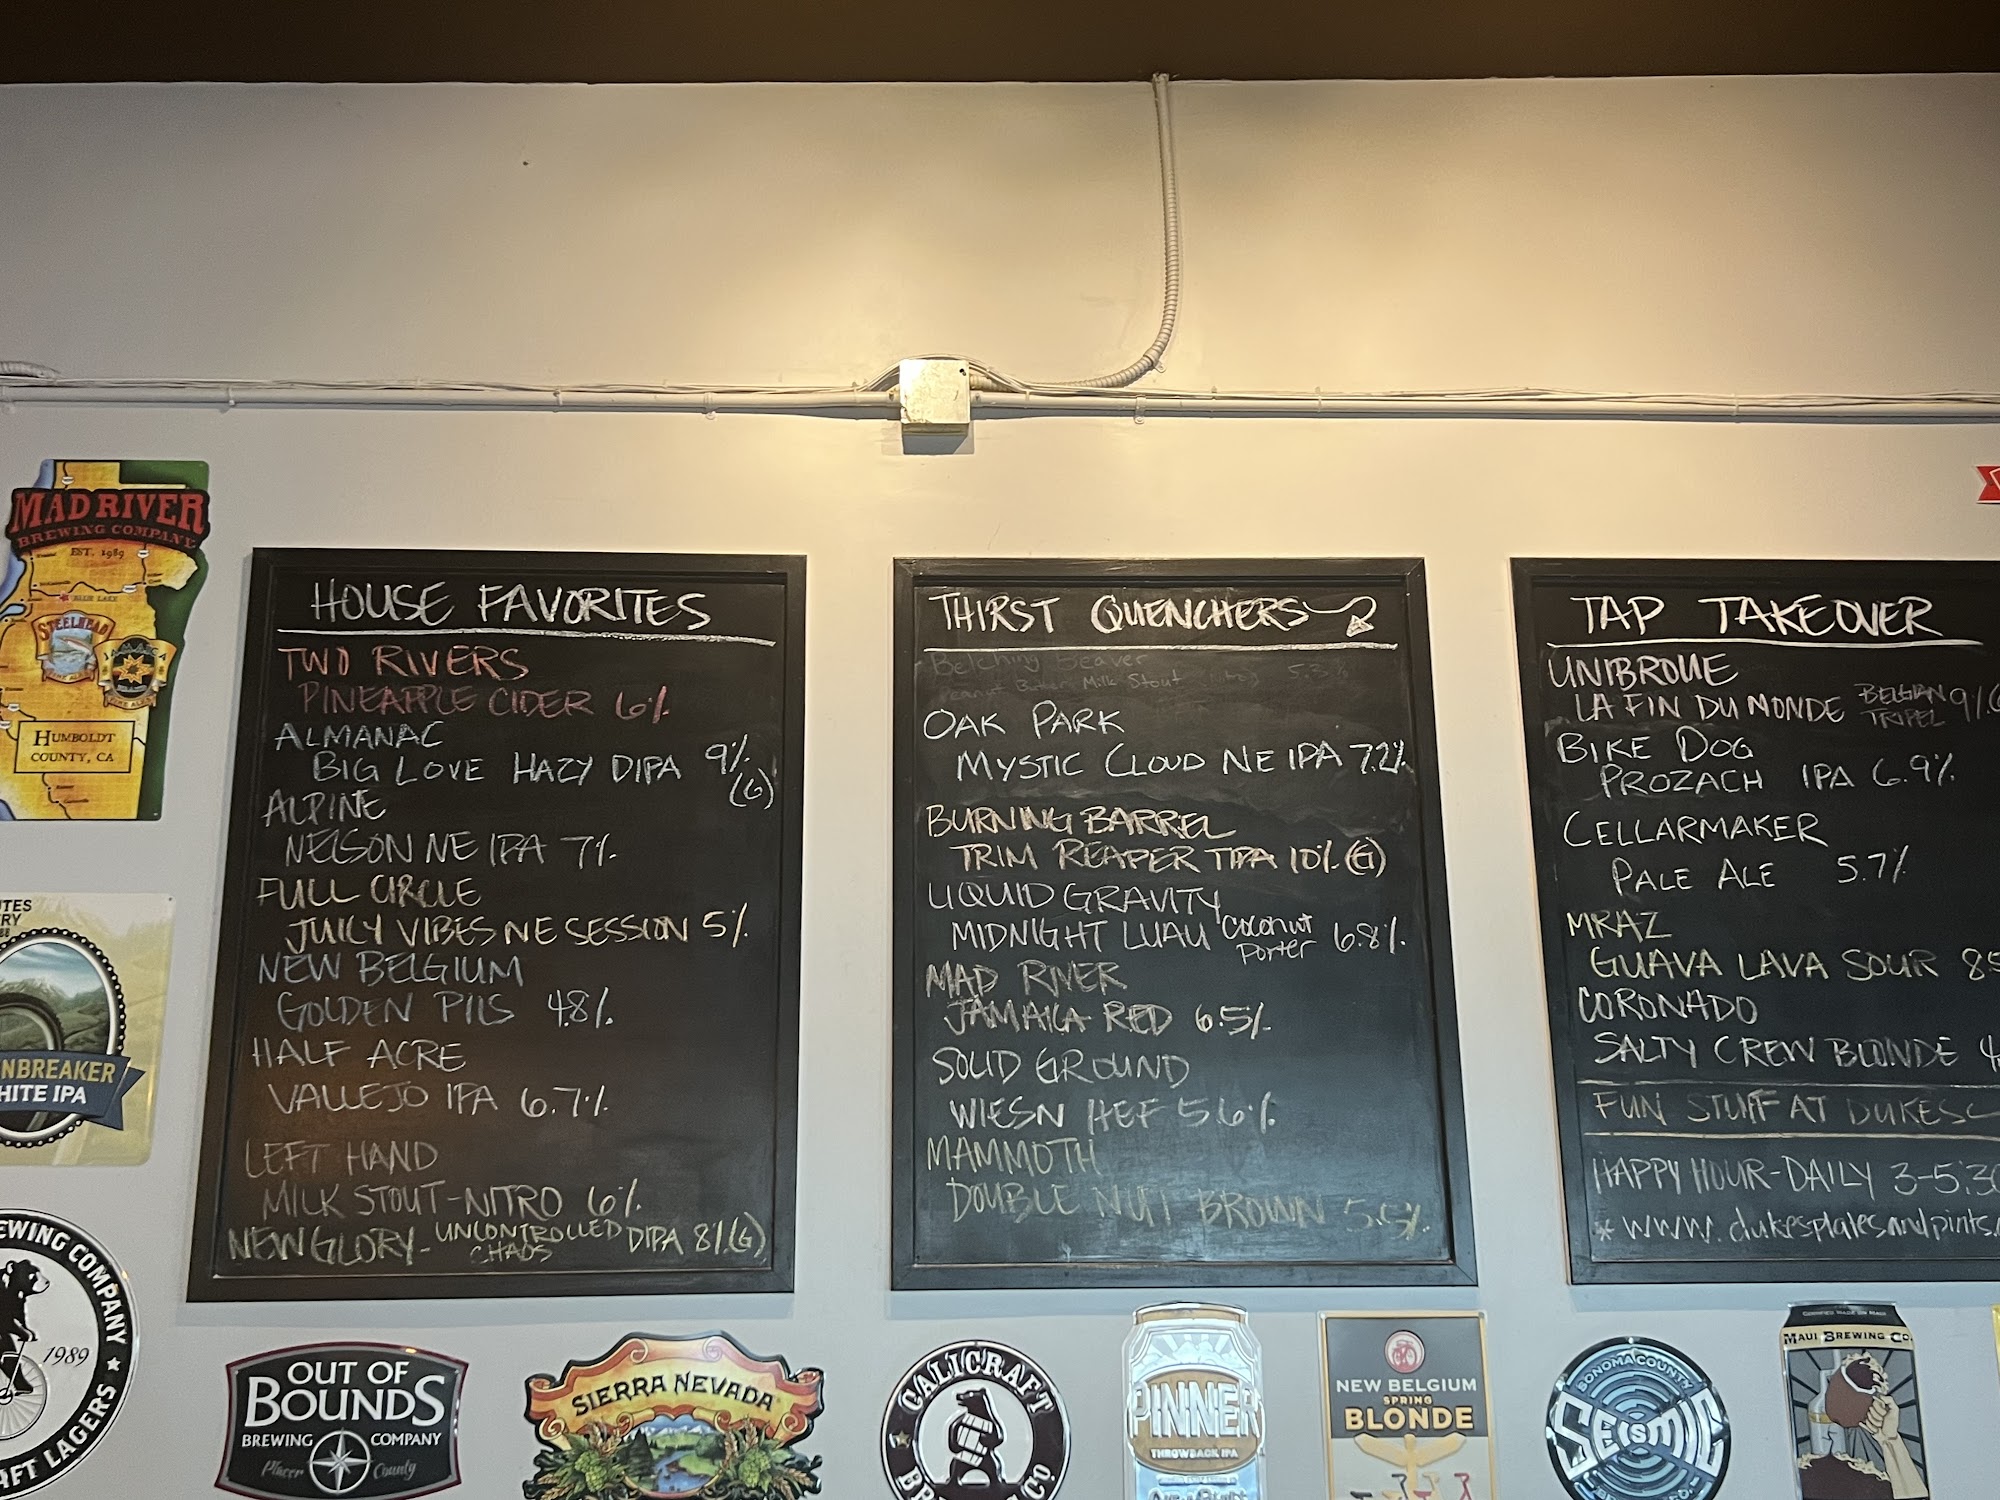 MAD RIVER
BREWING COMPANY
EST. 1989
BLUE LAKE
STEELHEAD
JAMAICA
HUMBOLDT
COUNTY, CA
HOUSE FAVORITES
TWO RIVERS
PINEAPPLE CIDER 6%
ALMANAC
BIG LOVE HAZY DIPA 9%
(G)
ALPINE
NELSON NE IPA 7%
FULL CIRCLE
JUICY VIBES NE SESSION 5%
NEW BELGIUM
GOLDEN PILS 4.8%
HALF ACRE
VALLEJO IPA 6.7%
LEFT HAND
MILK STOUT-NITRO 6%
NEW GLORY- UNCONTROLLED CHAOS DIPA 8% (G)
THIRST QUENCHERS
Belching Beaver
Peanut Butter Milk Stout 5.3%
OAK PARK
MYSTIC CLOUD NE IPA 7.2%
BURNING BARREL
TRIM REAPER TIPA 10% (G)
LIQUID GRAVITY
MIDNIGHT LUAU Coconut Porter 6.8%
MAD RIVER
JAMAICA RED 6.5%
SOLID GROUND
WIESN HEF 5.6%
MAMMOTH
DOUBLE NUT BROWN 5.5%
TAP TAKEOVER
UNIBROUE
LA FIN DU MONDE BELGIAN TRIPEL 9%
BIKE DOG
PROZACH IPA 6.9%
CELLARMAKER
PALE ALE 5.7%
MRAZ
GUAVA LAVA SOUR 8.5
CORONADO
SALTY CREW BLONDE 4.
FUN STUFF AT DUKES
HAPPY HOUR-DAILY 3-5:30
* www.dukesplatesandpints.
UTES
RY
88
NBREAKER
HITE IPA
EWING COMPANY
1989
AFT LAGERS
OUT OF
BOUNDS
BREWING COMPANY
Placer County
SIERRA NEVADA
CALICRAFT
BR CO
PINNER
THROWBACK IPA
NEW BELGIUM
SPRING
BLONDE
SONOMA COUNTY
SEISMIC
MAUI BREWING CO.